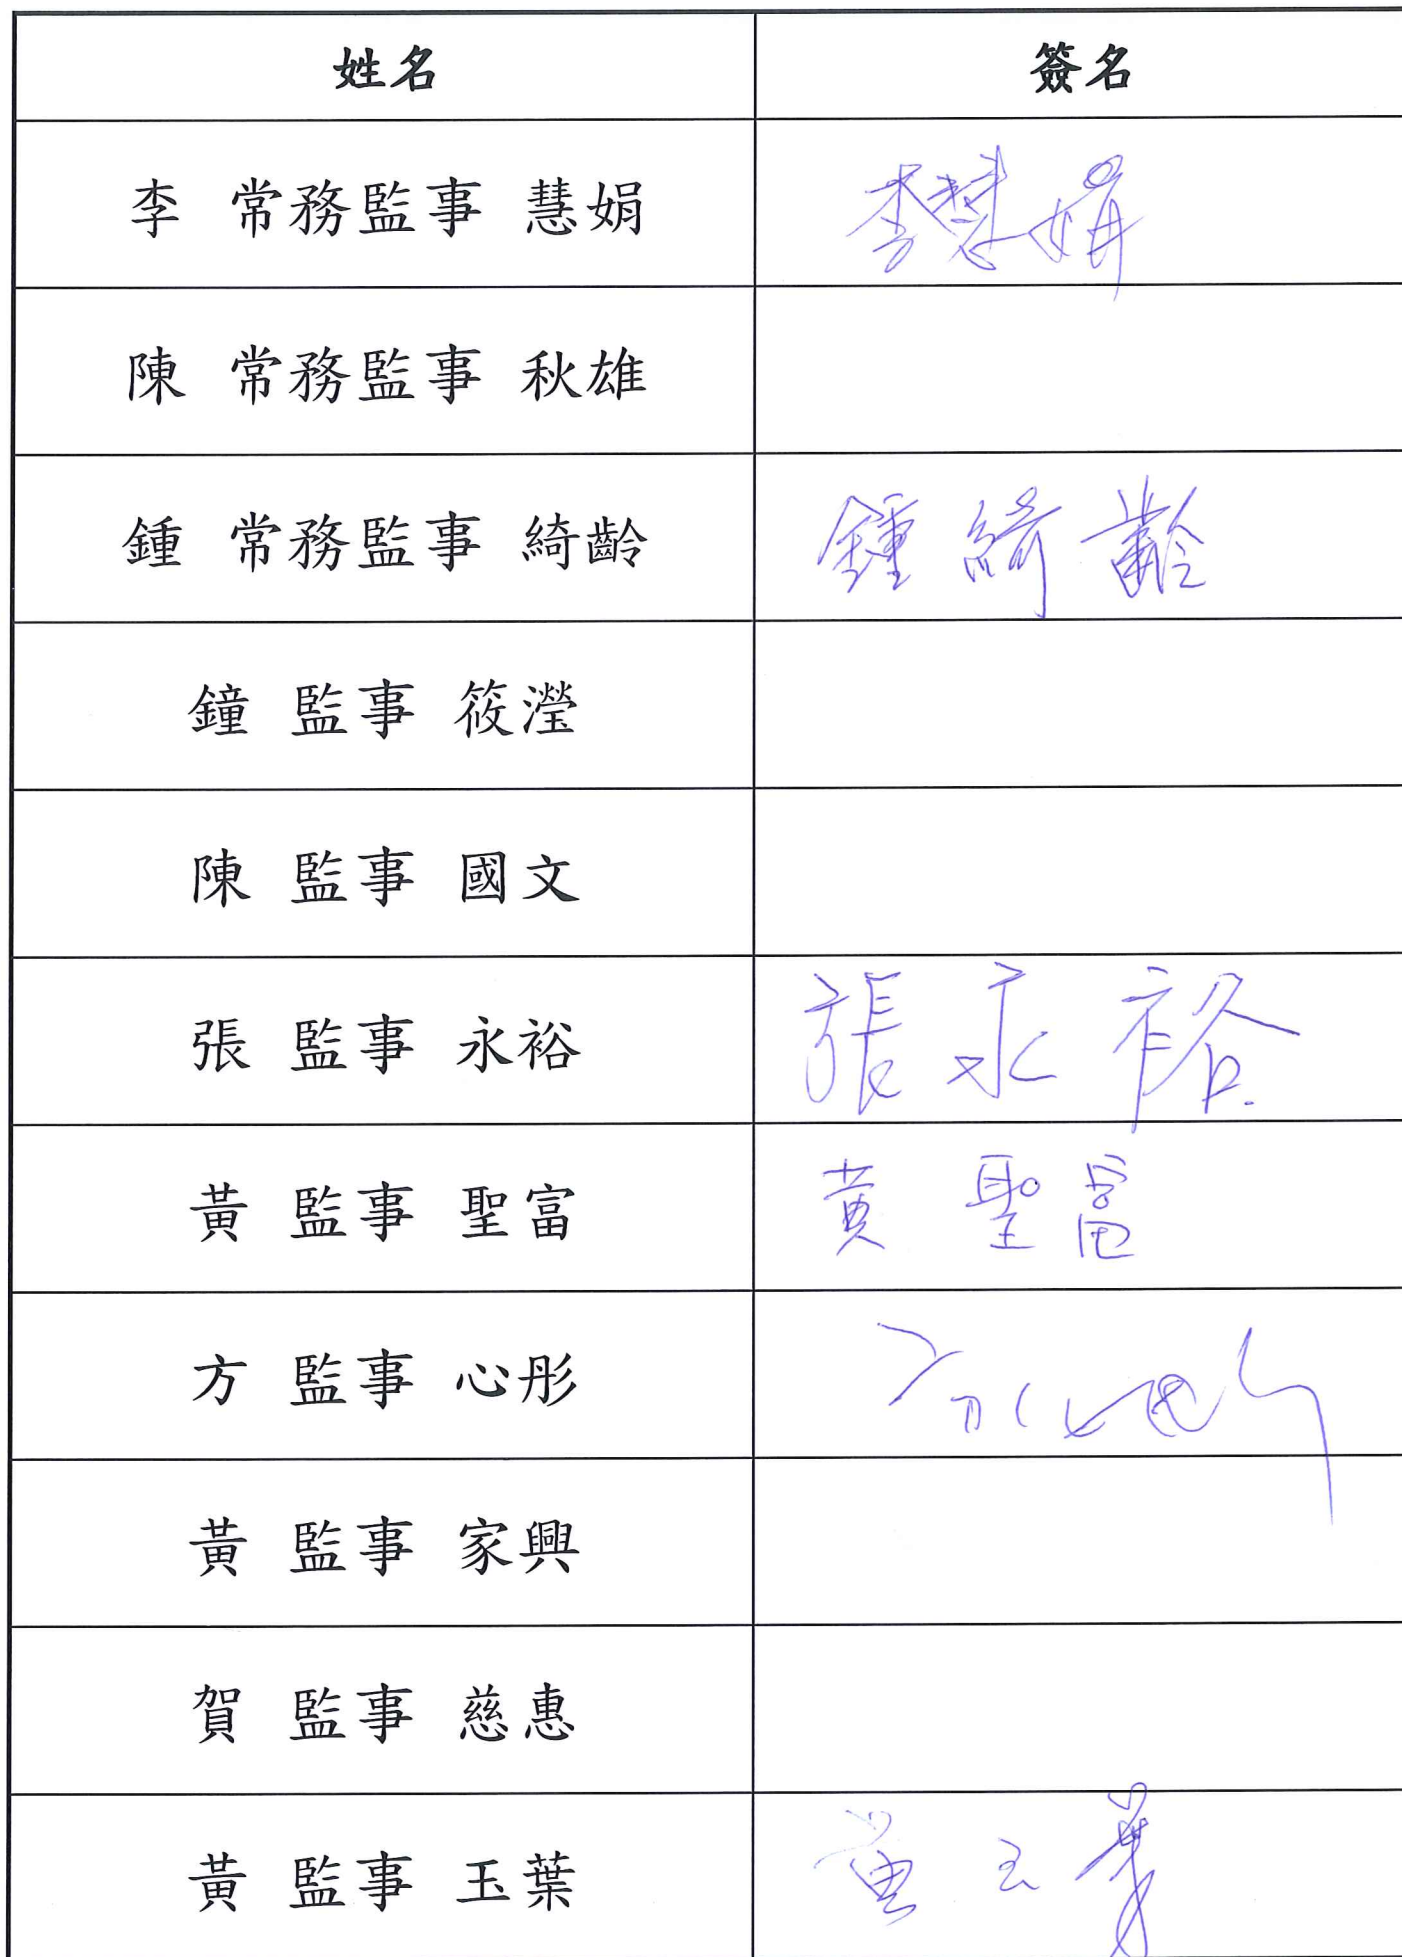 姓名 簽名
李 常務監事 慧娟 李慧娟
陳 常務監事 秋雄
鍾 常務監事 綺齡 鍾綺齡
鐘 監事 筱瀅
陳 監事 國文
張 監事 永裕 張永裕
黃 監事 聖富 黃聖富
方 監事 心彤 方心彤
黃 監事 家興
賀 監事 慈惠
黃 監事 玉葉 黃玉葉